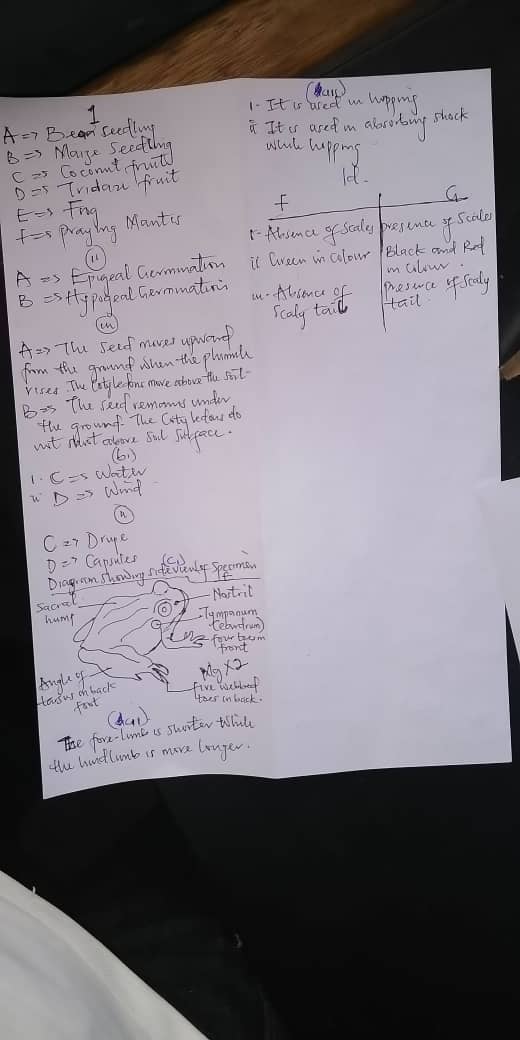 1
A => Bean Seedling
B => Maize Seedling
C => Coconut fruit
D => Tridax fruit
E => Frog
F => praying Mantis
(ii)
A => Epigeal Germination
B => Hypogeal Germination
(iii)
A => The seed moves upward
from the ground when the plumule
rises. The Cotyledons move above the soil.
B => The seed remains under
the ground. The Cotyledons do
not above soil surface.
(bi)
i. C => Water
ii D => Wind
(ii)
C => Drupe
D => Capsules
(Ci)
Diagram showing side view of specimen
Sacral hump
Nostril
Tympanum
(eburdrum)
four toes in
front
Angle of
on back
foot
Mg x2
five webbed
toes in back.
The fore-limb is shorter while
the hindlimb is more longer.
i- It is used in hopping
ii It is used in absorbing shock
while hopping
1d.
F G
i- Absence of Scales presence of Scales
ii Green in colour Black and Red
in colour.
iii- Absence of
scaly tail
presence of scaly
tail.